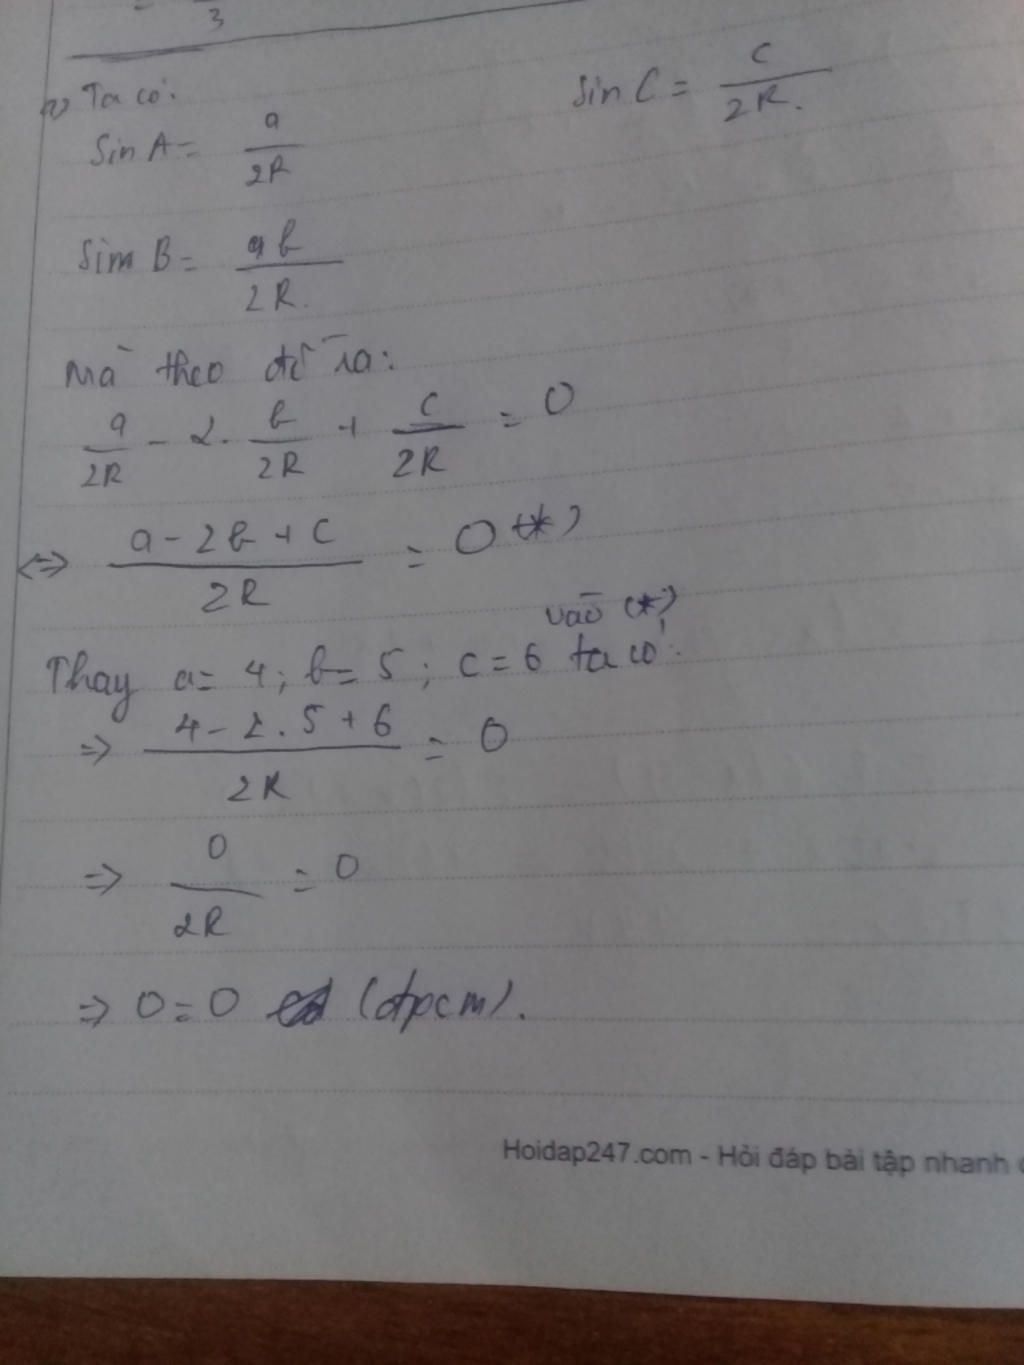 3
a) Ta có:
Sin A = a/2R
Sin C = c/2R.
Sin B = b/2R.
Mà theo đề ra:
a/2R - 2. b/2R + c/2R = 0
<=> (a - 2b + c)/2R = 0 (*)
vào (*)
Thay a = 4; b = 5; c = 6 ta có:
=> (4 - 2.5 + 6)/2R = 0
=> 0/2R = 0
=> 0 = 0 (đpcm).
Hoidap247.com - Hỏi đáp bài tập nhanh